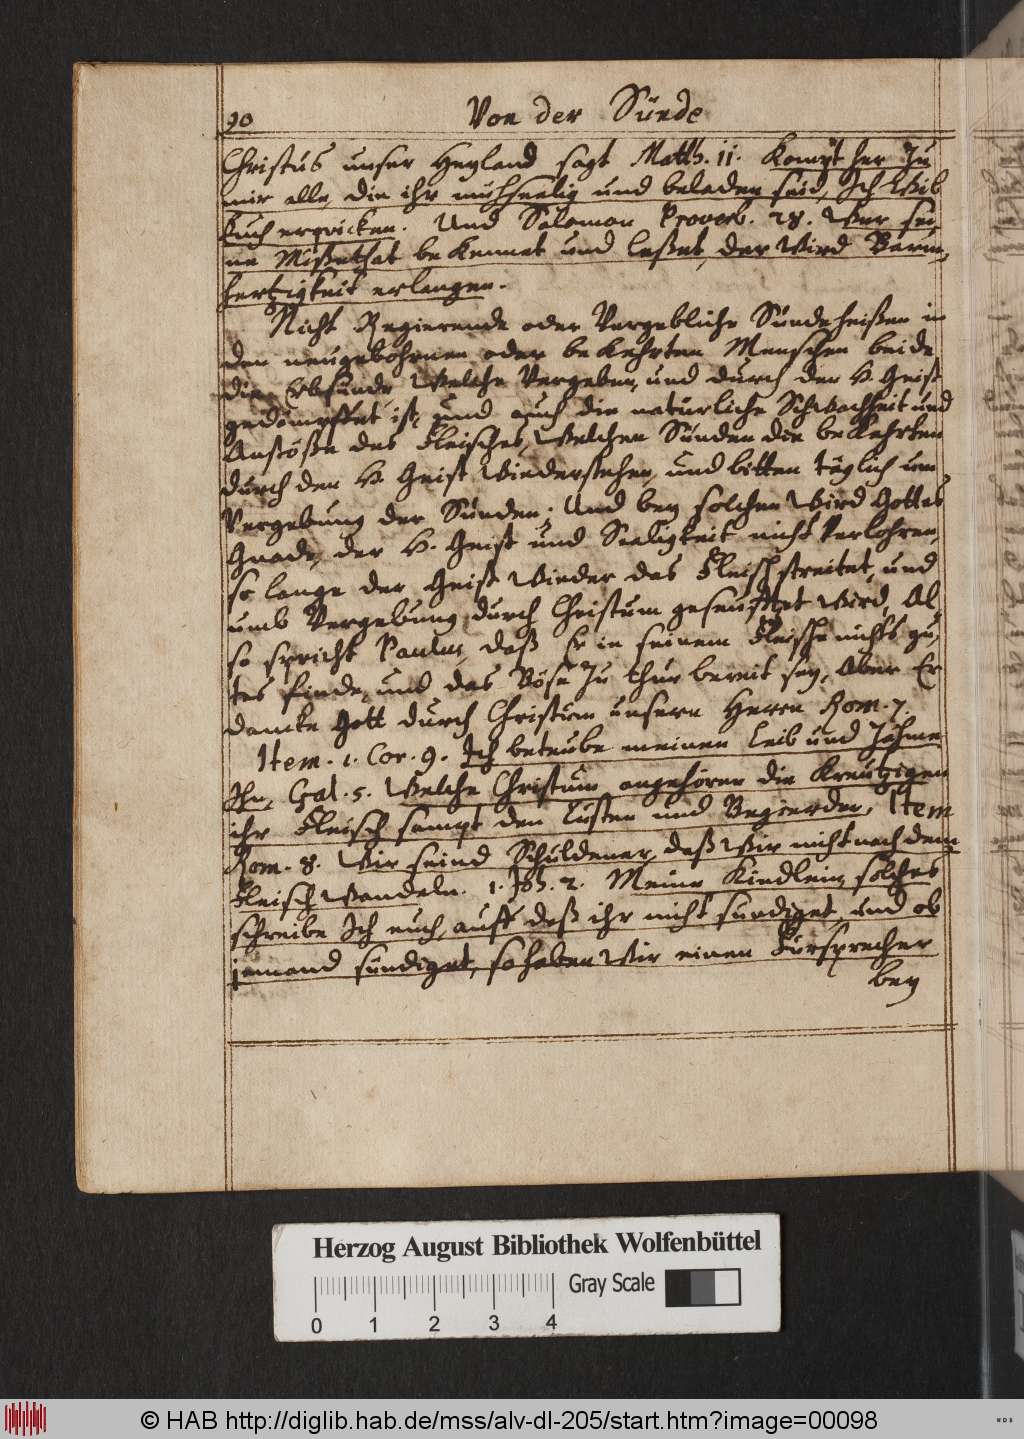 90
Von der Sünde
Christus unser Heyland sagt Matth. 11. Komt her Zu
mir alle, die ihr mühseelig und beladen seid, Ich Wil
Euch erqvicken. Und Salomon Proverb. 28. Wer sei
ne Mißethat bekennet und leßet, der Wird Barm,
hertzigkeit erlangen.
Nicht Regierende oder Vergebliche Sünde heißen in
den neugebohrnen oder bekehrten Menschen beide
die Erbsünde Welche Vergeben, und durch den H. Geist
gedempffet ist, und auch die natürliche Schwachheit und
Anstöße des Fleisches, Welchen Sünden die bekehrten
durch den H. Geist Wiederstehen, und bitten täglich um
Vergebung der Sünden; Und bey solchen Wird Gottes
Gnade, der H. Geist und Seeligkeit nicht Verlohren,
so lange der Geist Wieder das Fleisch streitet, und
umb Vergebung durch Christum geseuffzet Wird, Al,
so spricht Paulus, daß Er in seinem Fleische nichts gu,
tes finde, und das Böse Zu thun bereit sey, Aber Er
dancke Gott durch Christum unsern Herrn Rom. 7.
Item. 1. Cor. 9. Ich beteube meinen Leib und Zähme
Ihn, Gal. 5. Welche Christum angehören die Kreutzigen
ihr Fleisch sampt den Lüsten und Begierden, Item
Rom. 8. Wir seind Schuldener, daß Wir nicht nach dem
Fleisch Wandeln. 1. Joh. 2. Meine Kindlein, solches
schreibe Ich euch, auff daß ihr nicht sundiget, und ob
jemand sündiget, so haben Wir einen Fürsprecher
bey
Herzog August Bibliothek Wolfenbüttel
Gray Scale
0 1 2 3 4
© HAB http://diglib.hab.de/mss/alv-dl-205/start.htm?image=00098